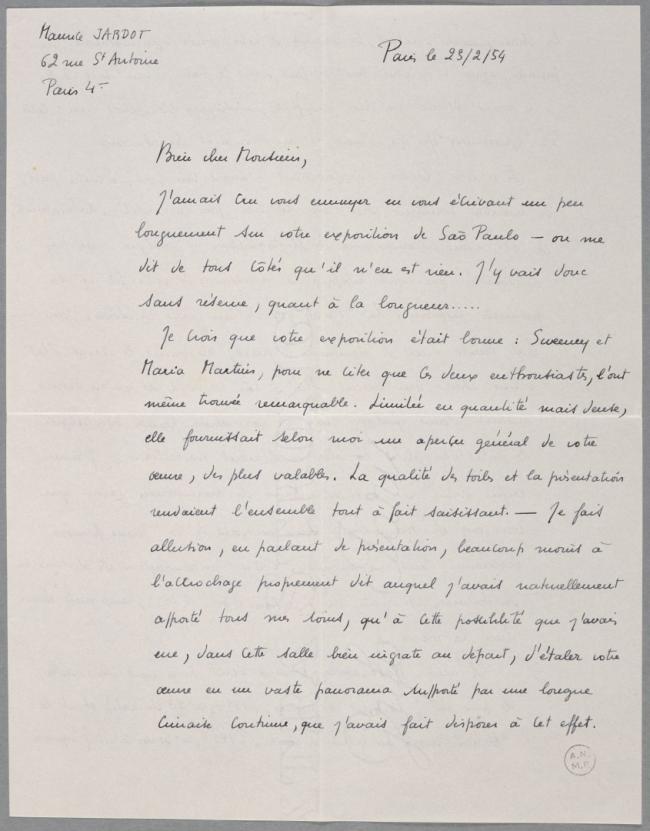 Maurice JARDOT
62 rue St Antoine
Paris 4e
Paris le 23/2/54
Bien cher Monsieur,
J'aurais cru vous ennuyer en vous écrivant un peu
longuement sur votre exposition de Saõ Paulo — on me
dit de tous côtés qu'il n'en est rien. J'y vais donc
sans réserve, quant à la longueur.....
Je crois que votre exposition était bonne : Sweeney et
Maria Martins, pour ne citer que ces deux enthousiastes, l'ont
même trouvée remarquable. Limitée en quantité mais dense,
elle fournissait selon moi un aperçu général de votre
œuvre, des plus valables. La qualité des toiles et la présentation
rendaient l'ensemble tout à fait saisissant. — Je fais
allusion, en parlant de présentation, beaucoup moins à
l'accrochage proprement dit auquel j'avais naturellement
apporté tous mes soins, qu'à cette possibilité que j'avais
eue, dans cette salle bien ingrate au départ, d'étaler votre
œuvre en un vaste panorama supporté par une longue
cimaise continue, que j'avais fait disposer à cet effet.
A.N.
M.P.